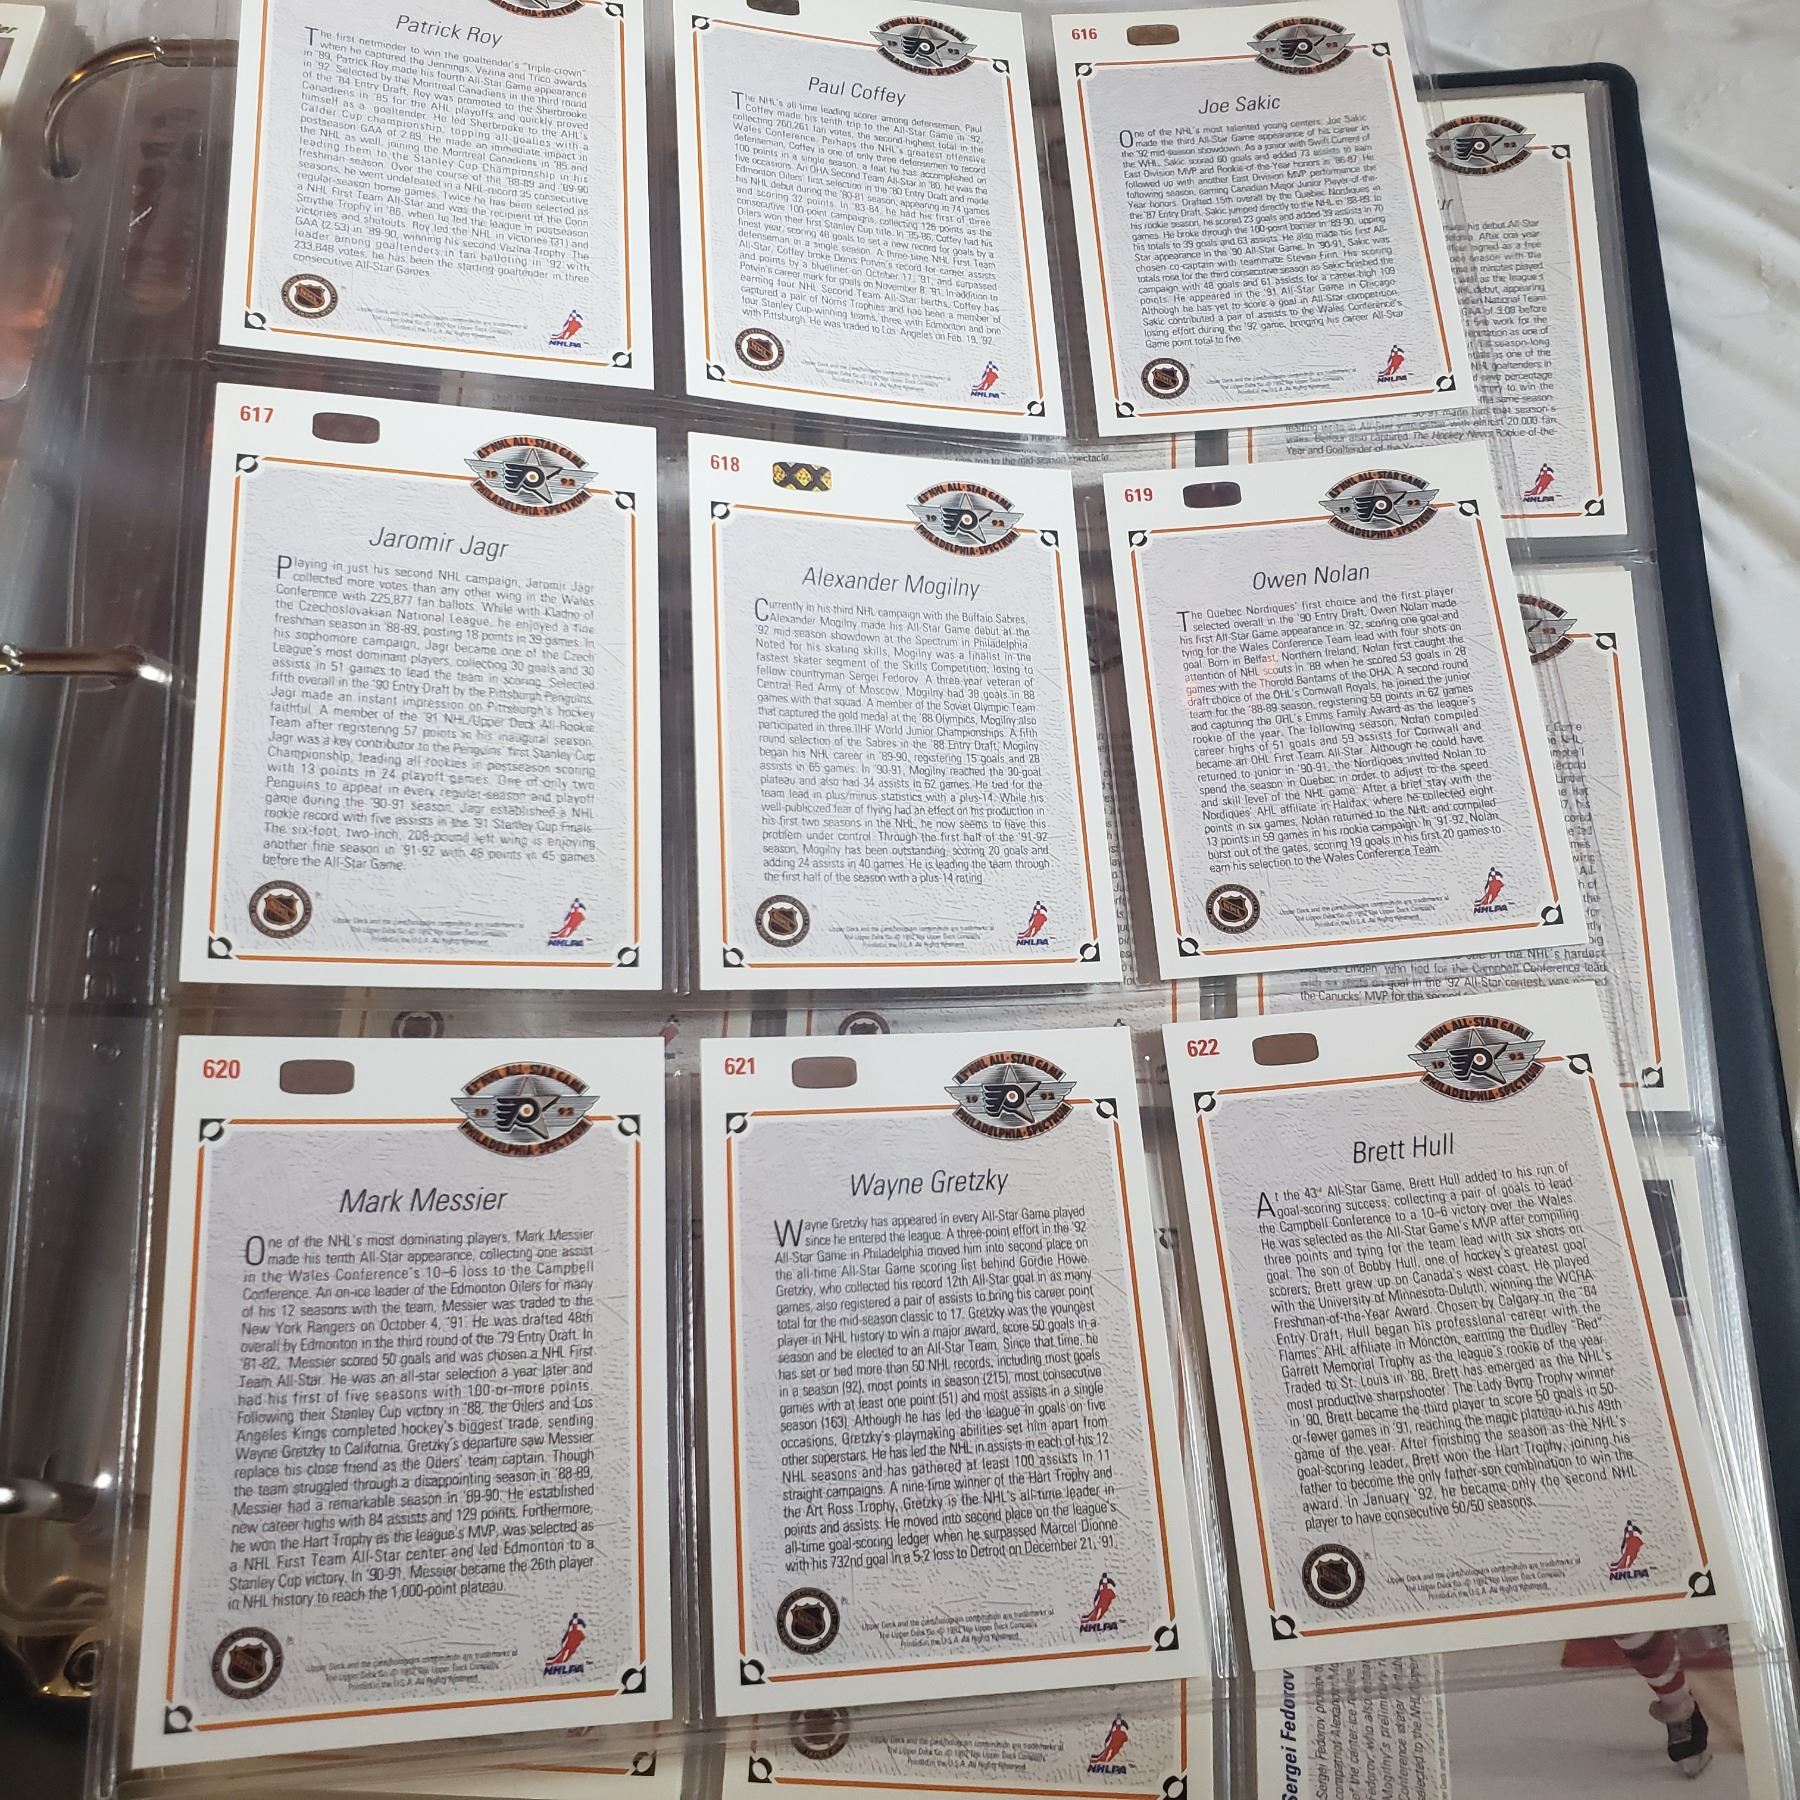 Patrick Roy
The first netminder to win the goaltender's "triple-crown"
when he captured the Jennings, Vezina and Trico awards
in '89, Patrick Roy made his fourth All-Star Game appearance
in '92. Selected by the Montreal Canadiens in the third round
of the '84 Entry Draft, Roy was promoted to the Sherbrooke
Canadiens in '85 for the AHL playoffs and quickly proved
himself as a goaltender. He led Sherbrooke to the AHL's
Calder Cup championship, topping all goalies with a
postseason GAA of 2.89. He made an immediate impact in
the NHL as well, joining the Montreal Canadiens in '85 and
leading them to the Stanley Cup Championship in his
freshman season. Over the course of the '88-89 and '89-90
seasons, he went undefeated in a NHL-record 35 consecutive
regular-season home games. Twice he has been selected as
a NHL First Team All-Star and was the recipient of the Conn
Smythe Trophy in '86, when he led the league in postseason
victories and shutouts. Roy led the NHL in victories (31) and
GAA (2.53) in '89-90, winning his second Vezina Trophy. The
leader among goaltenders in fan balloting in '92 with
233,848 votes, he has been the starting goaltender in three
consecutive All-Star Games.
NHLPA
Paul Coffey
The NHL's all-time leading scorer among defensemen, Paul
Coffey made his tenth trip to the All-Star Game in '92,
collecting 260,261 fan votes, the second-highest total in the
Wales Conference. Perhaps the NHL's greatest offensive
defenseman, Coffey is one of only three defensemen to record
100 points in a single season, a feat he has accomplished on
five occasions. An OHA Second Team All-Star in '80, he was the
Edmonton Oilers' first selection in the '80 Entry Draft and made
his NHL debut during the '80-81 season, appearing in 74 games
and scoring 32 points. In '83-84, he had his first of three
consecutive 100-point campaigns, collecting 126 points as the
Oilers won their first Stanley Cup title. In '85-86, Coffey had his
finest year, scoring 48 goals to set a new record for goals by a
defenseman in a single season. A three-time NHL First Team
All-Star, Coffey broke Denis Potvin's record for career assists
and points by a blueliner on October 17, '91, and surpassed
Potvin's career mark for goals on November 8, '91. In addition to
earning four NHL Second Team All-Star berths, Coffey has
captured a pair of Norris Trophies and has been a member of
four Stanley Cup-winning teams, three with Edmonton and one
with Pittsburgh. He was traded to Los Angeles on Feb. 19, '92.
NHLPA
616
Joe Sakic
One of the NHL's most talented young centers, Joe Sakic
made the third All-Star Game appearance of his career in
the '92 mid-season showdown. As a junior with Swift Current of
the WHL, Sakic scored 60 goals and added 73 assists to earn
East Division MVP and Rookie-of-the-Year honors in '86-87. He
followed up with another East Division MVP performance the
following season, earning Canadian Major Junior Player-of-the-
Year honors. Drafted 15th overall by the Quebec Nordiques in
the '87 Entry Draft, Sakic jumped directly to the NHL in '88-89. In
his rookie season, he scored 23 goals and added 39 assists in 70
games. He broke through the 100-point barrier in '89-90, upping
his totals to 39 goals and 63 assists. He also made his first All-
Star appearance in the '90 All-Star Game. In '90-91, Sakic was
chosen co-captain with teammate Steven Finn. His scoring
totals rose for the third consecutive season as Sakic finished the
campaign with 48 goals and 61 assists for a career-high 109
points. He appeared in the '91 All-Star Game in Chicago.
Although he has yet to score a goal in All-Star competition,
Sakic contributed a pair of assists to the Wales Conference's
losing effort during the '92 game, bringing his career All-Star
Game point total to five.
NHLPA
617
43rd NHL ALL-STAR GAME
1992
PHILADELPHIA-SPECTRUM
Jaromir Jagr
Playing in just his second NHL campaign, Jaromir Jagr
collected more votes than any other wing in the Wales
Conference with 225,877 fan ballots. While with Kladno of
the Czechoslovakian National League, he enjoyed a fine
freshman season in '88-89, posting 18 points in 39 games. In
his sophomore campaign, Jagr became one of the Czech
League's most dominant players, collecting 30 goals and 30
assists in 51 games to lead the team in scoring. Selected
fifth overall in the '90 Entry Draft by the Pittsburgh Penguins,
Jagr made an instant impression on Pittsburgh's hockey
faithful. A member of the '91 NHL/Upper Deck All-Rookie
Team after registering 57 points in his inaugural season,
Jagr was a key contributor to the Penguins' first Stanley Cup
Championship, leading all rookies in postseason scoring
with 13 points in 24 playoff games. One of only two
Penguins to appear in every regular-season and playoff
game during the '90-91 season, Jagr established a NHL
rookie record with five assists in the '91 Stanley Cup Finals.
The six-foot, two-inch, 208-pound left wing is enjoying
another fine season in '91-92 with 49 points in 45 games
before the All-Star Game.
NHLPA
618
43rd NHL ALL-STAR GAME
1992
PHILADELPHIA-SPECTRUM
Alexander Mogilny
Currently in his third NHL campaign with the Buffalo Sabres,
Alexander Mogilny made his All-Star Game debut at the
'92 mid-season showdown at the Spectrum in Philadelphia.
Noted for his skating skills, Mogilny was a finalist in the
fastest skater segment of the Skills Competition, losing to
fellow countryman Sergei Fedorov. A three-year veteran of
Central Red Army of Moscow, Mogilny had 38 goals in 88
games with that squad. A member of the Soviet Olympic Team
that captured the gold medal at the '88 Olympics, Mogilny also
participated in three IIHF World Junior Championships. A fifth
round selection of the Sabres in the '88 Entry Draft, Mogilny
began his NHL career in '89-90, registering 15 goals and 28
assists in 65 games. In '90-91, Mogilny reached the 30-goal
plateau and also had 34 assists in 62 games. He tied for the
team lead in plus/minus statistics with a plus-14. While his
well-publicized fear of flying had an effect on his production in
his first two seasons in the NHL, he now seems to have this
problem under control. Through the first half of the '91-92
season, Mogilny has been outstanding, scoring 20 goals and
adding 24 assists in 40 games. He is leading the team through
the first half of the season with a plus-14 rating.
NHLPA
619
43rd NHL ALL-STAR GAME
1992
PHILADELPHIA-SPECTRUM
Owen Nolan
The Quebec Nordiques' first choice and the first player
selected overall in the '90 Entry Draft, Owen Nolan made
his first All-Star Game appearance in '92, scoring one goal and
tying for the Wales Conference Team lead with four shots on
goal. Born in Belfast, Northern Ireland, Nolan first caught the
attention of NHL scouts in '88 when he scored 53 goals in 28
games with the Thorold Bantams of the OHA. A second round
draft choice of the OHL's Cornwall Royals, he joined the junior
team for the '88-89 season, registering 59 points in 62 games
and capturing the OHL's Emms Family Award as the league's
rookie of the year. The following season, Nolan compiled
career highs of 51 goals and 59 assists for Cornwall and
became an OHL First Team All-Star. Although he could have
returned to junior in '90-91, the Nordiques invited Nolan to
spend the season in Quebec in order to adjust to the speed
and skill level of the NHL game. After a brief stay with the
Nordiques' AHL affiliate in Halifax, where he collected eight
points in six games, Nolan returned to the NHL and compiled
13 points in 59 games in his rookie campaign. In '91-92, Nolan
burst out of the gates, scoring 19 goals in his first 20 games to
earn his selection to the Wales Conference Team.
NHLPA
620
43rd NHL ALL-STAR GAME
1992
PHILADELPHIA-SPECTRUM
Mark Messier
One of the NHL's most dominating players, Mark Messier
made his tenth All-Star appearance, collecting one assist
in the Wales Conference's 10-6 loss to the Campbell
Conference. An on-ice leader of the Edmonton Oilers for many
of his 12 seasons with the team, Messier was traded to the
New York Rangers on October 4, '91. He was drafted 48th
overall by Edmonton in the third round of the '79 Entry Draft. In
'81-82, Messier scored 50 goals and was chosen a NHL First
Team All-Star. He was an all-star selection a year later and
had his first of five seasons with 100-or-more points.
Following their Stanley Cup victory in '88, the Oilers and Los
Angeles Kings completed hockey's biggest trade, sending
Wayne Gretzky to California. Gretzky's departure saw Messier
replace his close friend as the Oilers' team captain. Though
the team struggled through a disappointing season in '88-89,
Messier had a remarkable season in '89-90. He established
new career highs with 84 assists and 129 points. Furthermore,
he won the Hart Trophy as the league's MVP, was selected as
a NHL First Team All-Star center and led Edmonton to a
Stanley Cup victory. In '90-91, Messier became the 26th player
in NHL history to reach the 1,000-point plateau.
NHLPA
621
43rd NHL ALL-STAR GAME
1992
PHILADELPHIA-SPECTRUM
Wayne Gretzky
Wayne Gretzky has appeared in every All-Star Game played
since he entered the league. A three-point effort in the '92
All-Star Game in Philadelphia moved him into second place on
the all-time All-Star Game scoring list behind Gordie Howe.
Gretzky, who collected his record 12th All-Star goal in as many
games, also registered a pair of assists to bring his career point
total for the mid-season classic to 17. Gretzky was the youngest
player in NHL history to win a major award, score 50 goals in a
season and be elected to an All-Star Team. Since that time, he
has set or tied more than 50 NHL records, including most goals
in a season (92), most points in season (215), most consecutive
games with at least one point (51) and most assists in a single
season (163). Although he has led the league in goals on five
occasions, Gretzky's playmaking abilities set him apart from
other superstars. He has led the NHL in assists in each of his 12
NHL seasons and has gathered at least 100 assists in 11
straight campaigns. A nine-time winner of the Hart Trophy and
the Art Ross Trophy, Gretzky is the NHL's all-time leader in
points and assists. He moved into second place on the league's
all-time goal-scoring ledger when he surpassed Marcel Dionne
with his 732nd goal in a 5-2 loss to Detroit on December 21, '91.
NHLPA
622
43rd NHL ALL-STAR GAME
1992
PHILADELPHIA-SPECTRUM
Brett Hull
At the 43rd All-Star Game, Brett Hull added to his run of
goal-scoring success, collecting a pair of goals to lead
the Campbell Conference to a 10-6 victory over the Wales.
He was selected as the All-Star Game's MVP after compiling
three points and tying for the team lead with six shots on
goal. The son of Bobby Hull, one of hockey's greatest goal
scorers, Brett grew up on Canada's west coast. He played
with the University of Minnesota-Duluth, winning the WCHA
Freshman-of-the-Year Award. Chosen by Calgary in the '84
Entry Draft, Hull began his professional career with the
Flames' AHL affiliate in Moncton, earning the Dudley "Red"
Garrett Memorial Trophy as the league's rookie of the year.
Traded to St. Louis in '88, Brett has emerged as the NHL's
most productive sharpshooter. The Lady Byng Trophy winner
in '90, Brett became the third player to score 50 goals in 50-
or-fewer games in '91, reaching the magic plateau in his 49th
game of the year. After finishing the season as the NHL's
goal-scoring leader, Brett won the Hart Trophy, joining his
father to become the only father-son combination to win the
award. In January '92, he became only the second NHL
player to have consecutive 50/50 seasons.
NHLPA
Sergei Fedorov